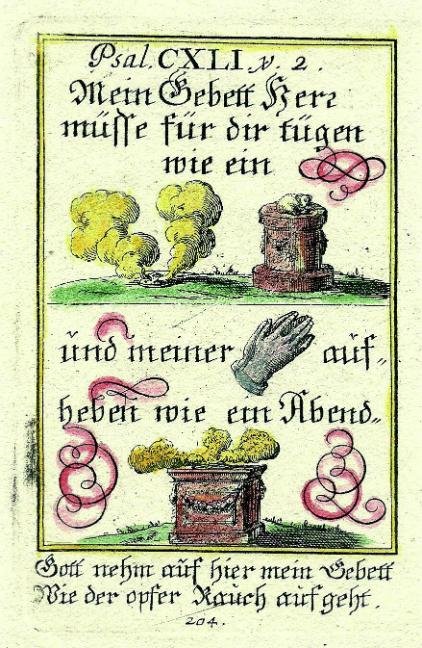 Psal. CXLI. v. 2.
Mein Gebett Herr
müsse für dir tügen
wie ein
und meiner auf-
heben wie ein Abend-
Gott nehm auf hier mein Gebett
Wie der opfer Rauch auf geht.
204.